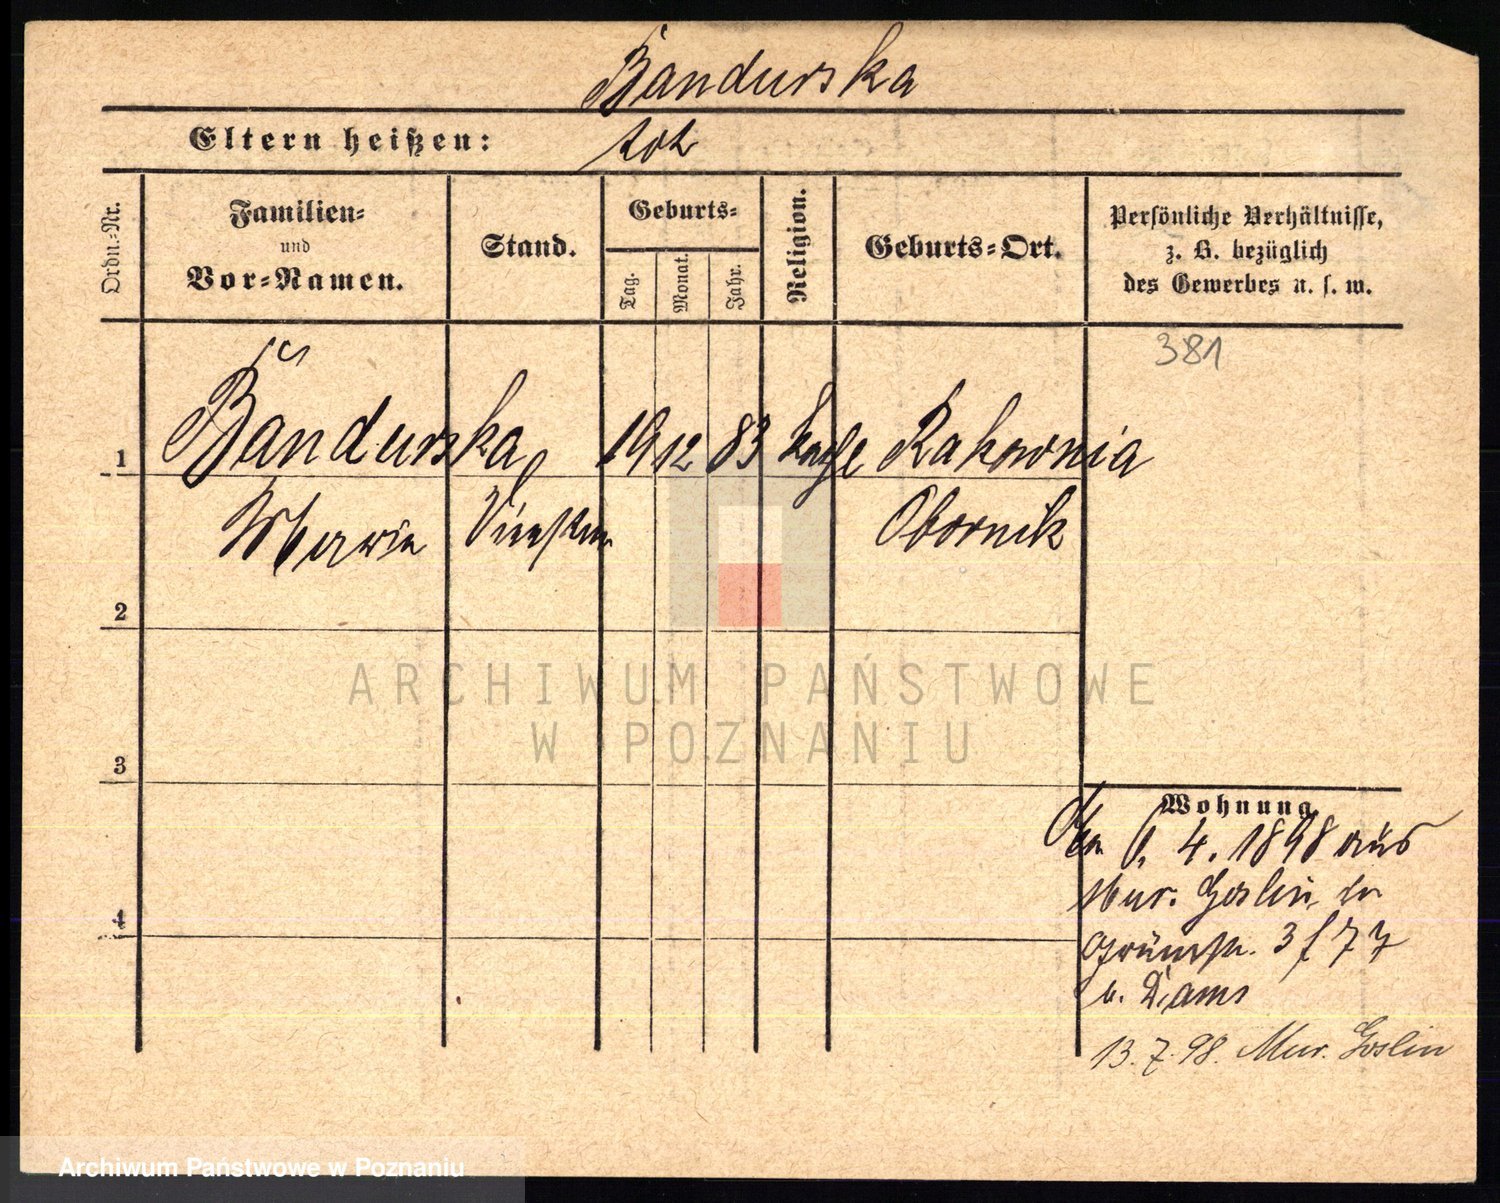 Bandurska
Eltern heißen: tot
Ordn.-Nr.
Familien-
und
Vor-Namen.
Stand.
Geburts-
Tag.
Monat.
Jahr.
Religion.
Geburts-Ort.
Persönliche Verhältnisse,
z. B. bezüglich
des Gewerbes u. s. w.
381
1 Bandurska 19 12 83 kath Rakownia
Marie Obornik
2
3
4
Wohnung
4. 1898 aus
Mur. Goslin
13.7.98. Mur. Goslin
ARCHIWUM PAŃSTWOWE
W POZNANIU
Archiwum Państwowe w Poznaniu